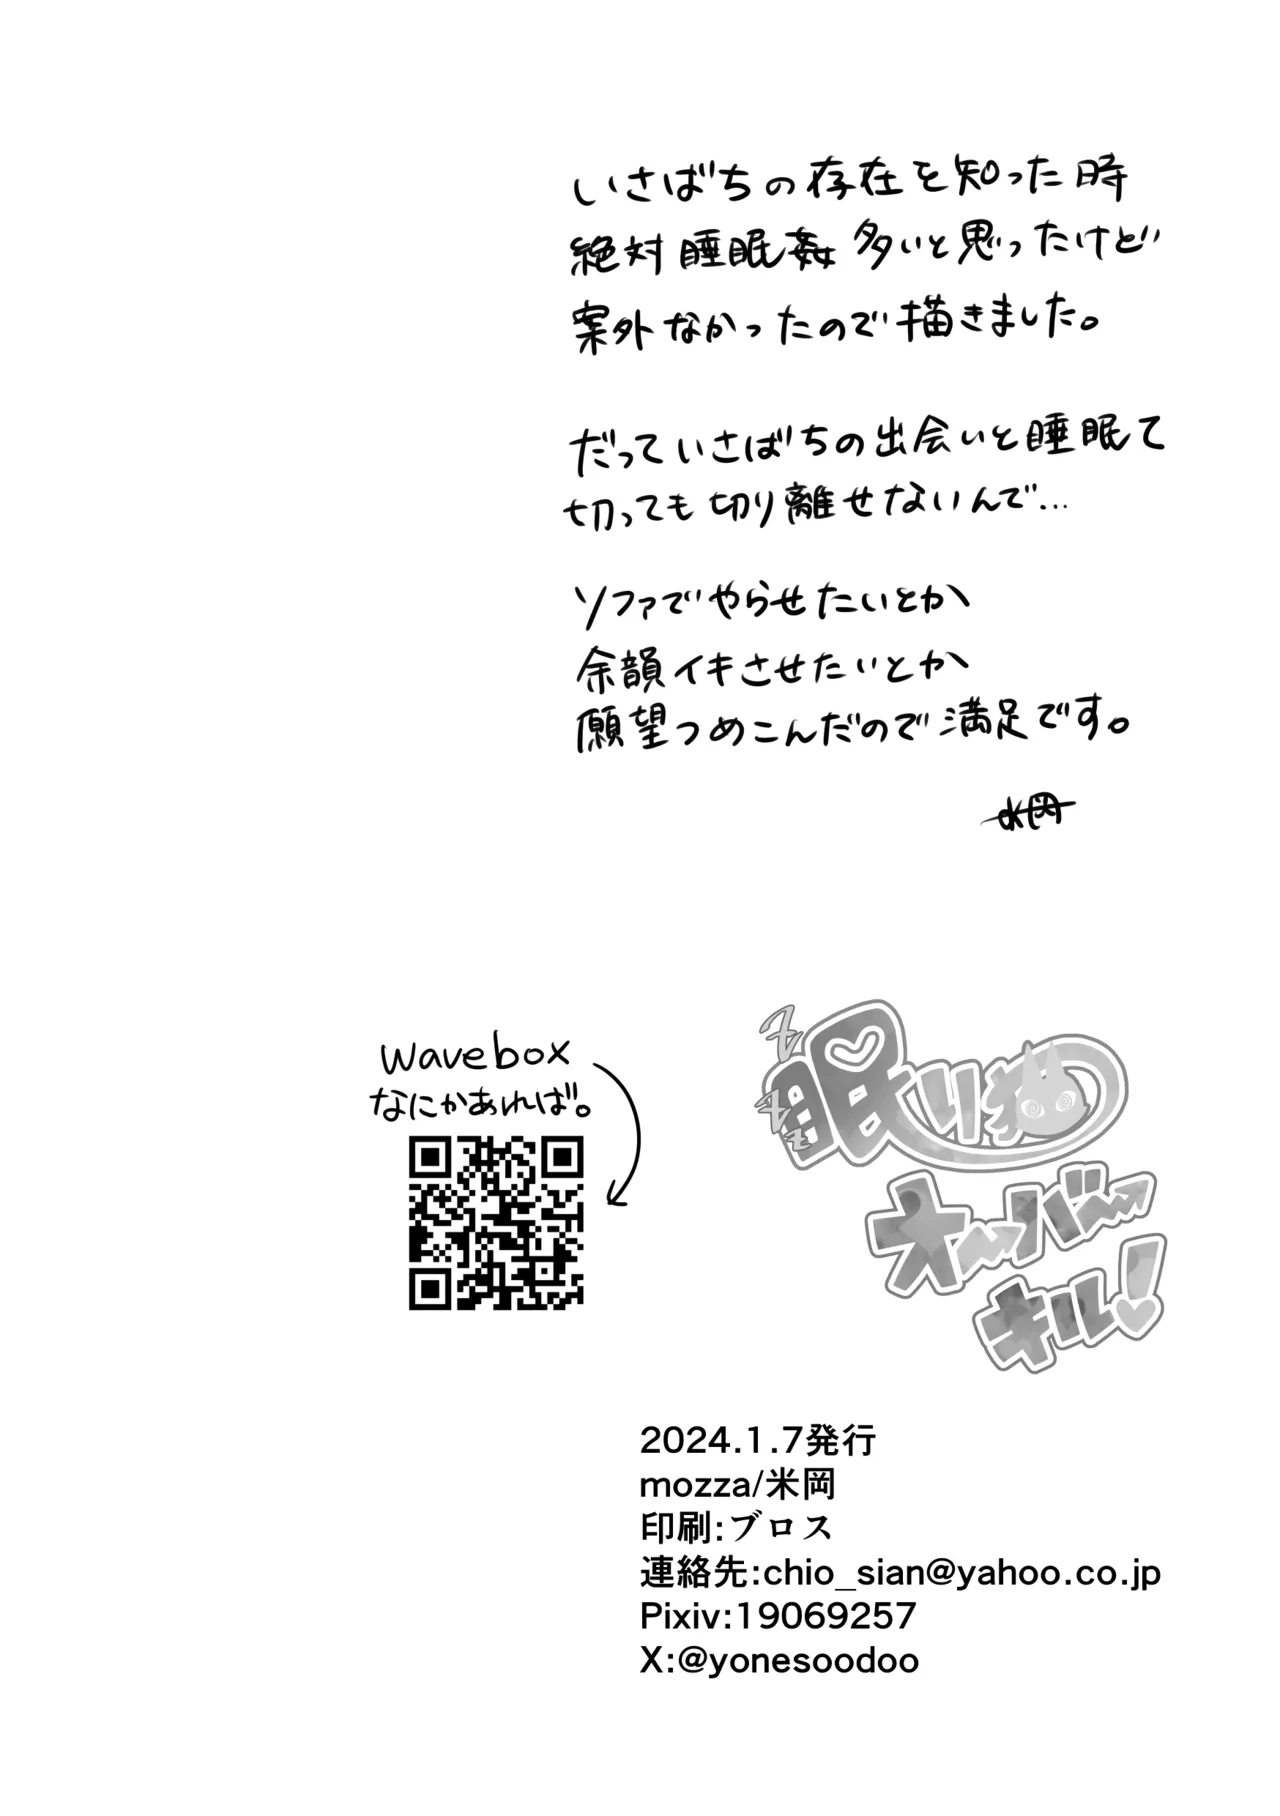 いさばちの存在を知った時
絶対睡眠姦多いと思ったけど
案外なかったので描きました。
だっていさばちの出会いと睡眠て
切っても切り離せないんで…
ソファでやらせたいとか
余韻イキさせたいとか
願望つめこんだので満足です。
米岡
wavebox
なにかあれば。
zzz
眠り
オーバー
キル!
2024.1.7発行
mozza/米岡
印刷:ブロス
連絡先:chio_sian@yahoo.co.jp
Pixiv:19069257
X:@yonesoodoo